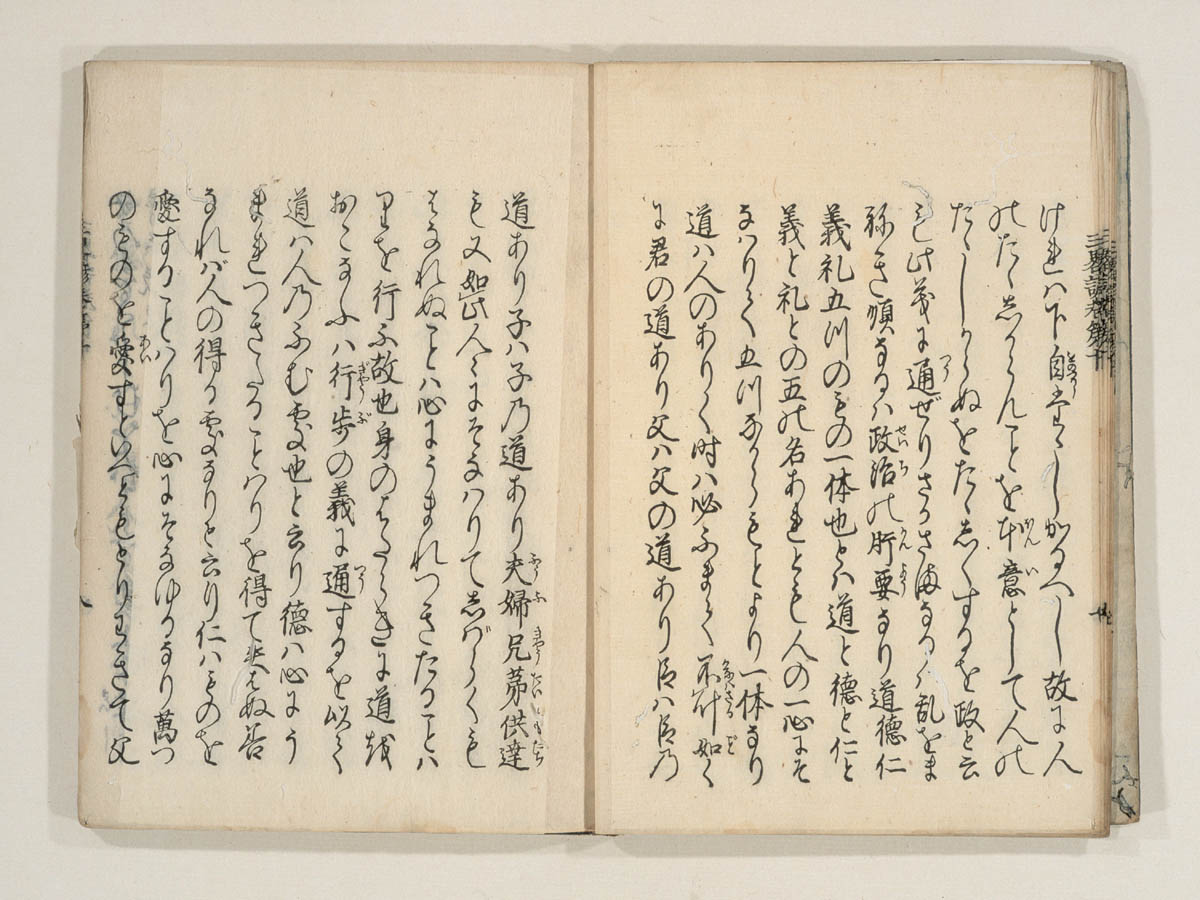 けれハ下自堂〻しかるへし故に人
のたゝしからんことを本意として人の
たゝしからぬをたゝしくするを政と云
也此義に通ぜりさかさまなるハ乱をま
ねき順なるハ政治の肝要なり道德仁
義礼五川のもの一体也とハ道と德と仁と
義と礼との五の名あれとも人の一心にそ
なハりて五川ながらもとより一体なり
道ハ人のありく時ハ必ふまて不叶如く
に君の道あり父ハ父の道あり臣ハ臣乃
道あり子ハ子乃道あり夫婦兄弟供達
も又如此人〻にそなハりてしばらくも
はなれぬことハ心にうまれつきたることハ
りを行ふ故也身のはたらきに道を
おこなふハ行歩の義に通するを以て
道ハ人乃ふむ處也と云り德ハ心にう
まれつきたることハりを得て失はぬ若
なれバ人の得る處なりと云り仁ハものを
愛することハりを心にそなゆるなり萬つ
のものを愛すといへともとりわきて父